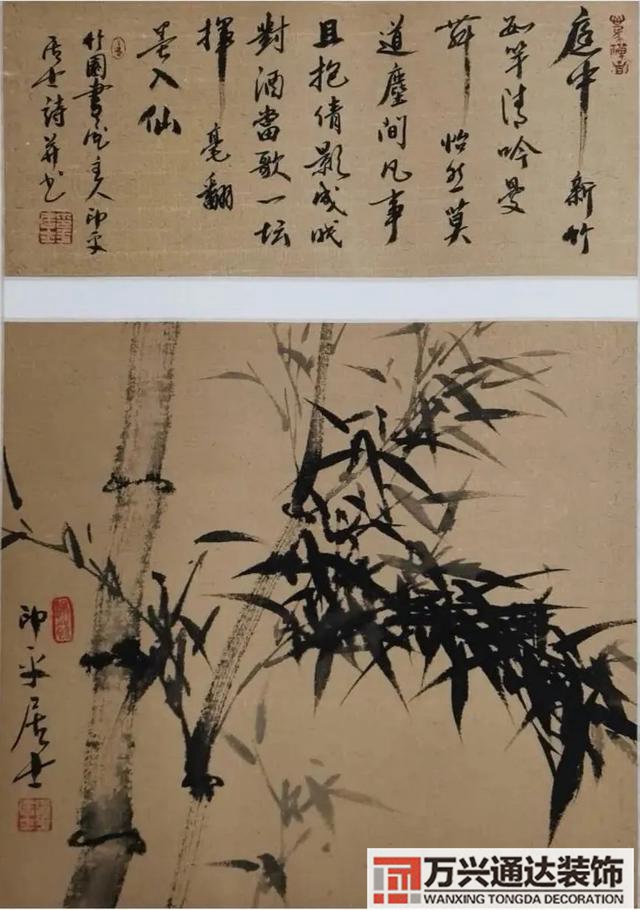 庭中新竹
竿清吟曼
舞怡然莫
道塵间凡事
且抱倩影成眠
對酒當歌一坛
揮毫翻
墨入仙
竹園書主人印平
居士詩并书
印平居士
万兴通达装饰
WANXING TONGDA DECORATION